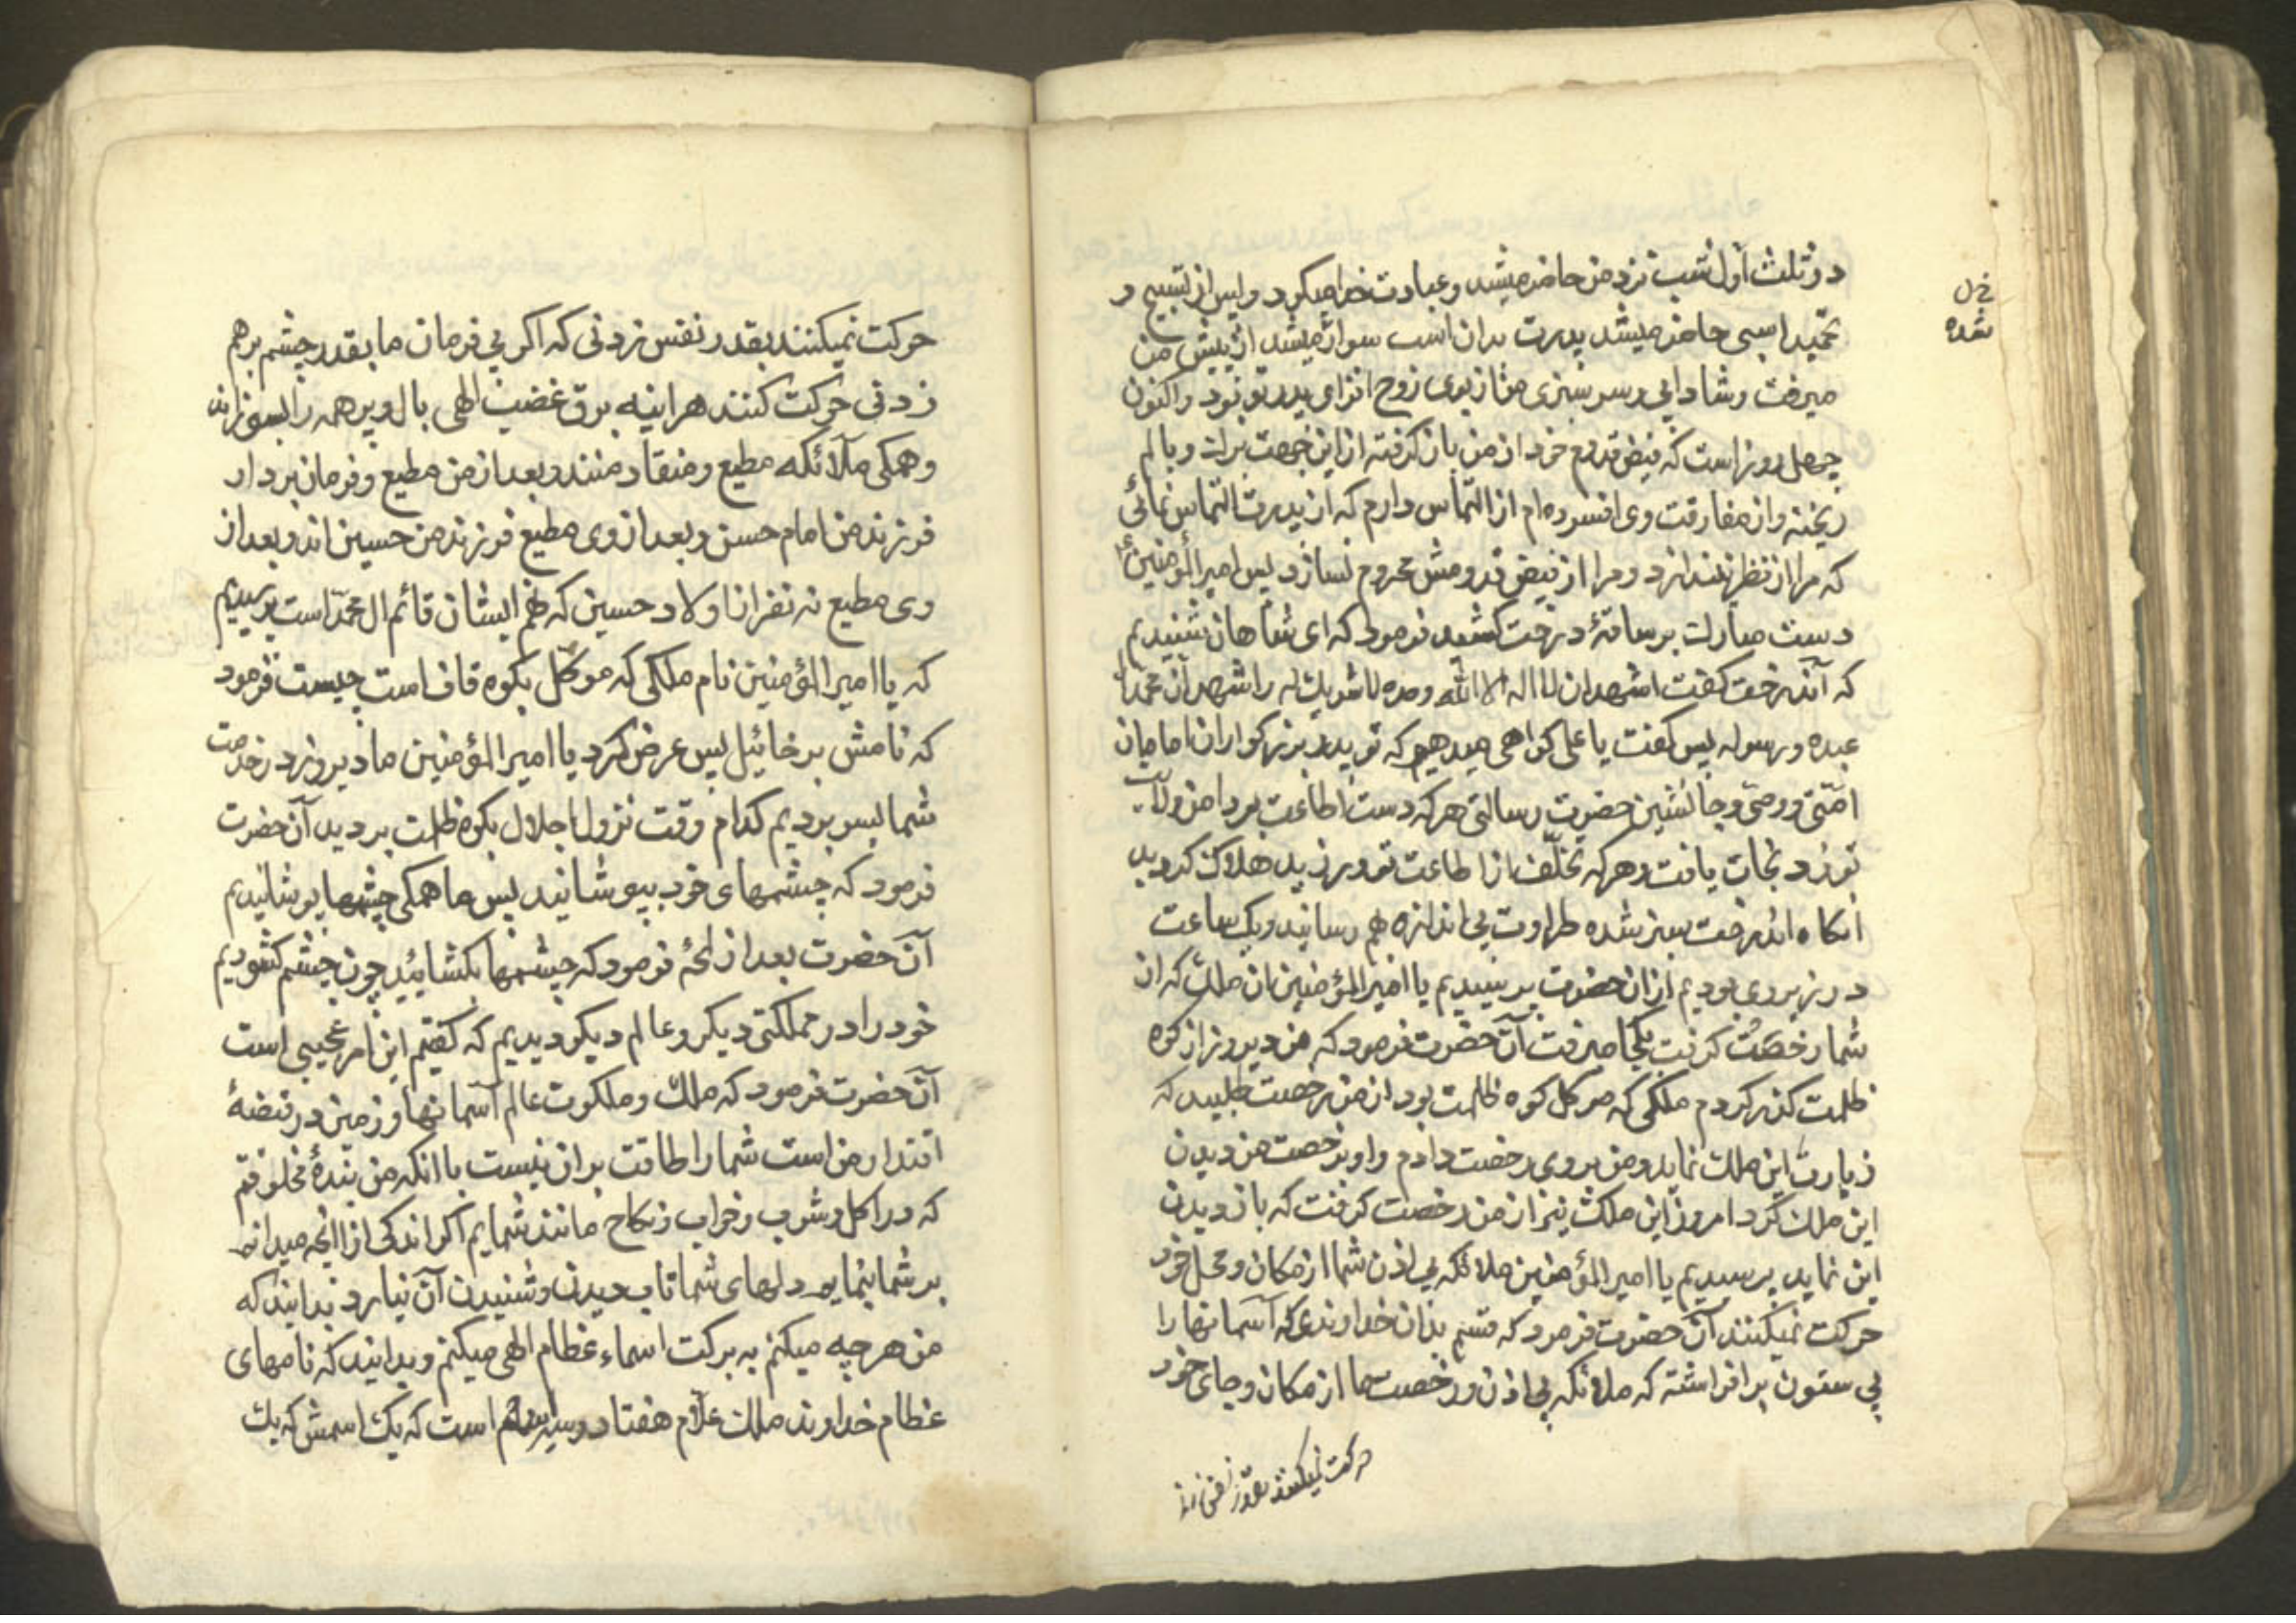 در ثلث اول شب نزد من حاضر میشد و عبادت خدا میکرد و پس از تسبیح و
تحمید اسبی حاضر میشد پدرت بران اسب سوار میشد از پیش من
میرفت و شادابی و سرسبزی من از بوی روح افزای پدر تو بود و اکنون
چهل روز است که فیض قدوم خود از من باز گرفته از این جهت برك و بالم
ریخته و از مفارقت وی افسرده‌ام از التماس دارم که از پدرت التماس نمائی
که مرا از نظر نیندازد و مرا از فیض قدومش محروم نسازد پس امیر المؤمنین ع
دست مبارك بر ساقهٔ درخت کشید فرمود که ای شاهان شنیدیم
که آندرخت گفت اشهد ان لا اله الا الله وحده لا شریك له و اشهد ان محمدا
عبده و رسوله پس گفت یا علی کواهی میدهیم که تو پدر بزرکواران امامان
امتی و وصی و جانشین حضرت رسالتی هر که دست اطاعت بر دامن ولایت
تو زد نجات یافت و هر که تخلف از اطاعت تو ورزید هلاك کردید
انکاه اندرخت سبز شده طراوت بی اندازه بهم رسانید و یك ساعت
در زیر وی بودیم از ان حضرت پرسیدیم یا امیر المؤمنین ان ملك که از
شما رخصت کرفت بکجا میرفت آن حضرت فرمود که من دیروز از کوه
ظلمت کذر کردم ملکی که موکل کوه ظلمت بود از من رخصت طلبید که
زیارت این ملك نماید و من بر وی رخصت دادم و او برخصت من دیدن
این ملك کرد امروز این ملك نیز از من رخصت کرفت که باز دیدن
این نماید پرسیدیم یا امیر المؤمنین ملائکه بی اذن شما از مکان و محل خود
حرکت نمیکنند آن حضرت فرمود که قسم بدان خداوندی که آسمانها را
بی ستون بر افراشته که ملائکه بی اذن و رخصت ما از مکان و جای خود
حرکت نمیکنند بقدر نفس زد
شده
حرکت نمیکنند بقدر نفس زدنی که اکر بی فرمان ما بقدر چشم برهم
زدنی حرکت کنند هراینه برق غضب الهی بال و پر همه را بسوزاند
و همکی ملائکه مطیع و منقاد منند و بعد از من مطیع و فرمان بردار
فرزند من امام حسن و بعد از وی مطیع فرزند من حسین اند و بعد از
وی مطیع نه نفر از اولاد حسین که نهم ایشان قائم ال محمد است پرسیدیم
که یا امیر المؤمنین نام ملکی که موکل بکوه قاف است چیست فرمود
که نامش برخائیل پس عرض کرد یا امیر المؤمنین ما دیروز در خدمت
شما بسر بردیم کدام وقت نزول اجلال بکوه ظلمت بردید آن حضرت
فرمود که چشمهای خود بپوشانید پس ما همکی چشمها پوشانیدیم
آن حضرت بعد از لمحهٔ فرمود که چشمها بکشائید چون چشم کشودیم
خود را در مملکتی دیکر و عالم دیکر دیدیم که کفتم این امر عجیبی است
آن حضرت فرمود که ملك و ملکوت عالم آسمانها و زمین در قبضهٔ
اقتدار من است شما را طاقت بران نیست با انکه من بندهٔ مخلوقم
که در اکل و شرب و خواب و نکاح مانند شمایم اکر اندکی از انچه میدانم
بر شما بنمایم دلهای شما تاب دیدن و شنیدن آن نیارد بدانید که
من هر چه میکنم به برکت اسماء عظام الهی میکنم و بدانید که نامهای
عظام خداوند ملك علام هفتاد و سه اسم است که یك اسمش که یك